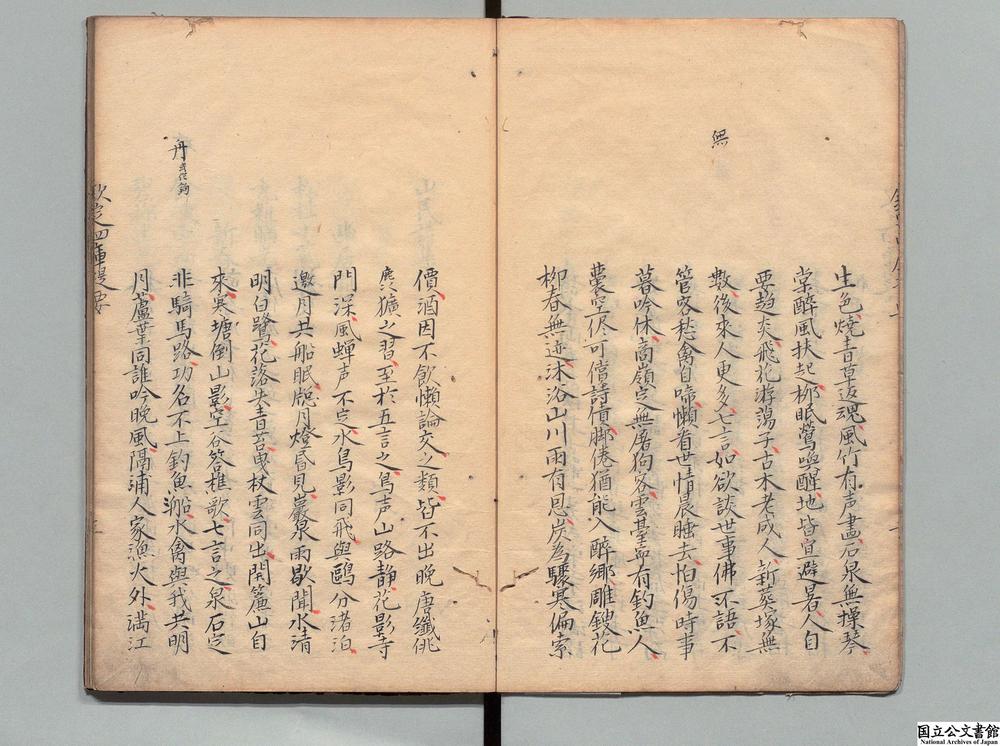 無
生色燒青草返魂風竹有声畫石泉無操琴
棠醉風扶起柳眠鶯喚醒地皆宜避暑人自
要趨炎飛花游蕩子古木老成人新葬塚無
數後來人更多七言如欲談世事佛不語不
管客愁禽自啼懶看世情晨睡去怕傷時事
暮吟休高嶺定無屠狗客雲臺寧有釣魚人
囊空侭可償詩債脚倦猶能入醉鄉雕鎪花
柳春無迹沐浴山川雨有恩炭為驟寒偏索
價酒因不飲懶論交之類皆不出晚唐纖佻
麁獷之習至於五言之鳥声山路静花影寺
門深風蟬声不定水鳥影同飛與鷗分渚泊
邀月共船眠照月燈昏見巖泉雨歇聞水清
明白鷺花落失青苔曳杖雲同出開簾山自
來寒塘倒山影空谷答樵歌七言之泉石定
非騎馬路功名不上釣魚船水禽與我共明
月蘆葉同誰吟晚風隔浦人家漁火外満江
丹
欽定四庫提要
国立公文書館
National Archives of Japan